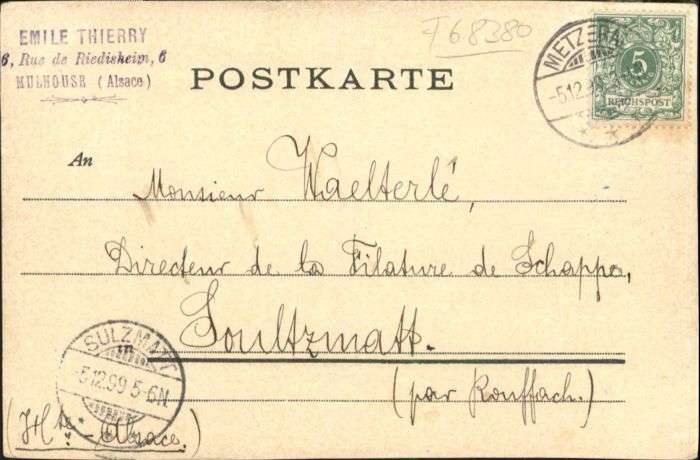 EMILE THIERRY
6, Rue de Riedisheim, 6
MULHOUSE (Alsace)
F 68380
POSTKARTE
METZERAL
-5.12.99
5
REICHSPOST
An
Monsieur Waelterlé,
Directeur de la Filature de Schappe,
in Soultzmatt.
(par Rouffach.)
SULZMATT
-5.12.99 5-6N.
(Hte - Alsace.)